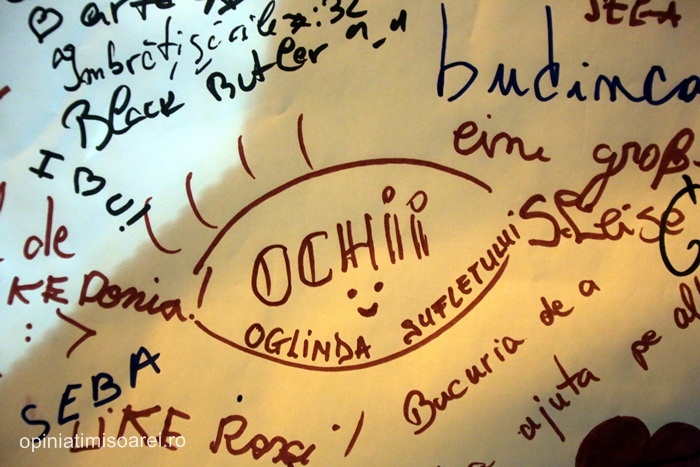 arte
îmbrățișările :32
Black Butler n_n
I BU!
budinca
eine groß
SLeise
de
KEDonia.
: >
OCHii
OGLiNDA SUFLETULUI
SEBA
LiKE Roxi
Bucuria de a
ajuta pe al
opiniatimisoarei.ro